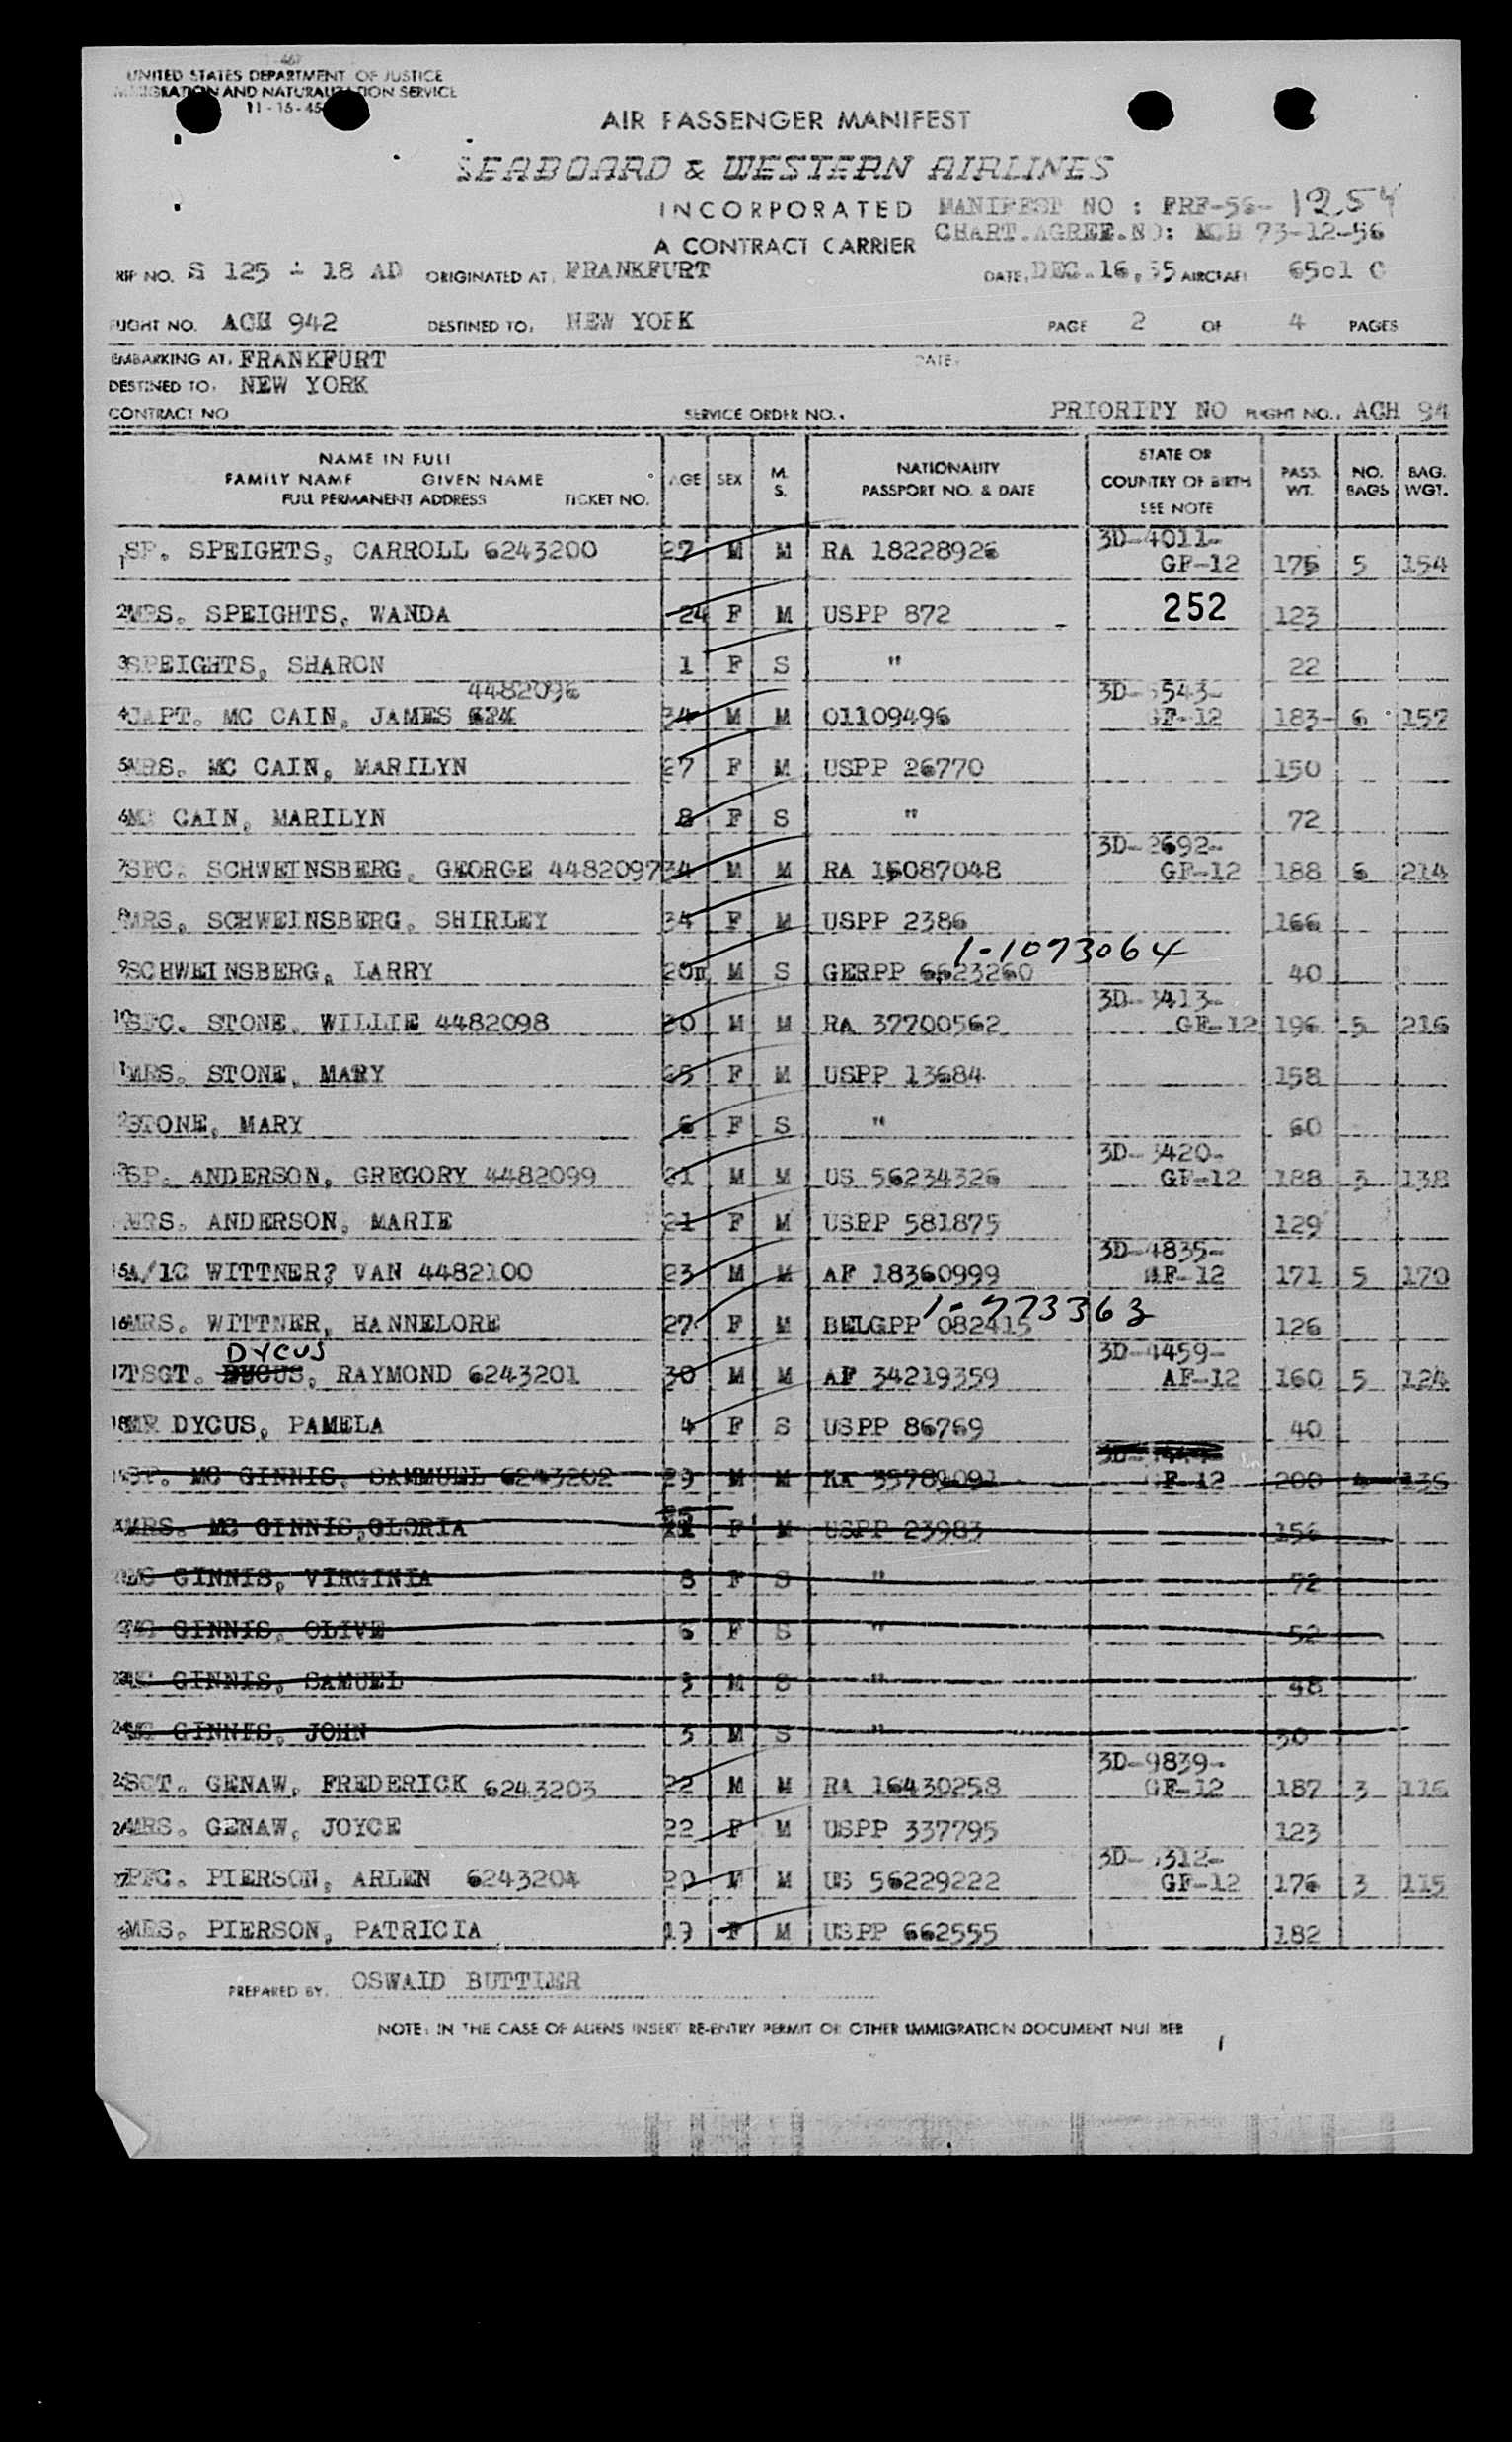 UNITED STATES DEPARTMENT OF JUSTICE
IMMIGRATION AND NATURALIZATION SERVICE
11-15-45
AIR PASSENGER MANIFEST
SEABOARD & WESTERN AIRLINES
INCORPORATED MANIFEST NO : FRF-56-1254
A CONTRACT CARRIER CHART.AGREE.NO: MCB 73-12-56
TRIP NO. S 125 - 18 AD ORIGINATED AT, FRANKFURT DATE, DEC.16,55 AIRCRAFT 6501 C
FLIGHT NO. ACH 942 DESTINED TO, NEW YORK PAGE 2 OF 4 PAGES
EMBARKING AT, FRANKFURT DATE,
DESTINED TO, NEW YORK
CONTRACT NO SERVICE ORDER NO., PRIORITY NO FLIGHT NO., ACH 94
NAME IN FULL
FAMILY NAME GIVEN NAME
FULL PERMANENT ADDRESS TICKET NO. AGE SEX M. S. NATIONALITY PASSPORT NO. & DATE STATE OR COUNTRY OF BIRTH SEE NOTE PASS. WT. NO. BAGS BAG. WGT.
3D-4011-
1 SP. SPEIGHTS, CARROLL 6243200 27 M M RA 18228926 GF-12 175 5 154
2 MRS. SPEIGHTS, WANDA 24 F M USPP 872 252 123
3 SPEIGHTS, SHARON 1 F S " 22
4482096 3D- 543-
4 CAPT. MC CAIN, JAMES 624 34 M M 01109496 GF-12 183- 6 157
5 MRS. MC CAIN, MARILYN 27 F M USPP 26770 150
6 MC CAIN, MARILYN 8 F S " 72
3D-2692-
7 SFC. SCHWEINSBERG, GEORGE 4482097 34 M M RA 15087048 GF-12 188 6 214
8 MRS. SCHWEINSBERG, SHIRLEY 34 F M USPP 2386 166
1-1073064
9 SCHWEINSBERG, LARRY 20m M S GERPP 6623260 40
3D-3413-
10 SFC. STONE, WILLIE 4482098 30 M M RA 37700562 GF-12 196 5 216
11 MRS. STONE, MARY F M USPP 13684 158
12 STONE, MARY 6 F S " 60
3D-3420-
13 SP. ANDERSON, GREGORY 4482099 21 M M US 56234326 GF-12 188 3 138
MRS. ANDERSON, MARIE 21 F M USPP 581875 129
3D-4835-
15 A/1C WITTNER? VAN 4482100 23 M M AF 18360999 AF-12 171 5 170
1-773363
16 MRS. WITTNER, HANNELORE 27 F M BELGPP 082415 126
DYCUS 3D-4459-
17 TSGT. DYCUS, RAYMOND 6243201 30 M M AF 34219359 AF-12 160 5 124
18 MR DYCUS, PAMELA 4 F S USPP 86769 40
3D-
19 SP. MC GINNIS, SAMMUEL 6243202 29 M M RA 35789091 GF-12 200 4 136
MRS. MC GINNIS,GLORIA F M USPP 23983 156
MC GINNIS, VIRGINIA 8 F S " 72
22 MC GINNIS, OLIVE 6 F S " 52
23 MC GINNIS, SAMUEL 3 M S " 48
24 MC GINNIS, JOHN 3 M S " 30
3D-9839-
25 SGT. GENAW, FREDERICK 6243203 22 M M RA 16430258 GF-12 187 3 116
26 MRS. GENAW, JOYCE 22 F M USPP 337795 123
3D- 312-
27 PFC. PIERSON, ARLEN 6243204 20 M M US 56229222 GF-12 176 3 115
MRS. PIERSON, PATRICIA 19 F M USPP 662555 182
PREPARED BY. OSWALD BUTTLER
NOTE: IN THE CASE OF ALIENS INSERT RE-ENTRY PERMIT OR OTHER IMMIGRATION DOCUMENT NUMBER